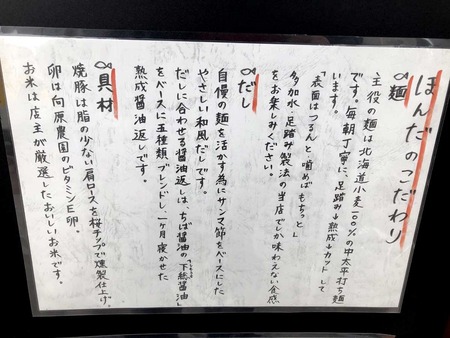 ほんだのこだわり
∞麺
主役の麺は北海道小麦100%の中太平打ち麺
です。毎朝丁寧に、足踏み↓熟成↓カットして
います。
「表面はつるんと噛めばもちっと」
多加水、足踏み製法の当店でしか味わえない食感
をお楽しみください。
∞だし
自慢の麺を活かす為にサンマ節をベースにした
やさしい和風だしです。
だしに合わせる醤油返しは、ちば醤油の「下総醤油」
をベースに五種類ブレンドし、1ヶ月寝かせた
熟成醤油返しです。
∞具材
焼豚は脂の少ない肩ロースを桜チップで燻製仕上げ。
卵は向原農園のビタミンE卵。
お米は店主が厳選したおいしいお米です。